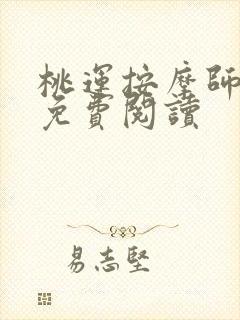 桃運按摩師
免費閱讀
易志堅